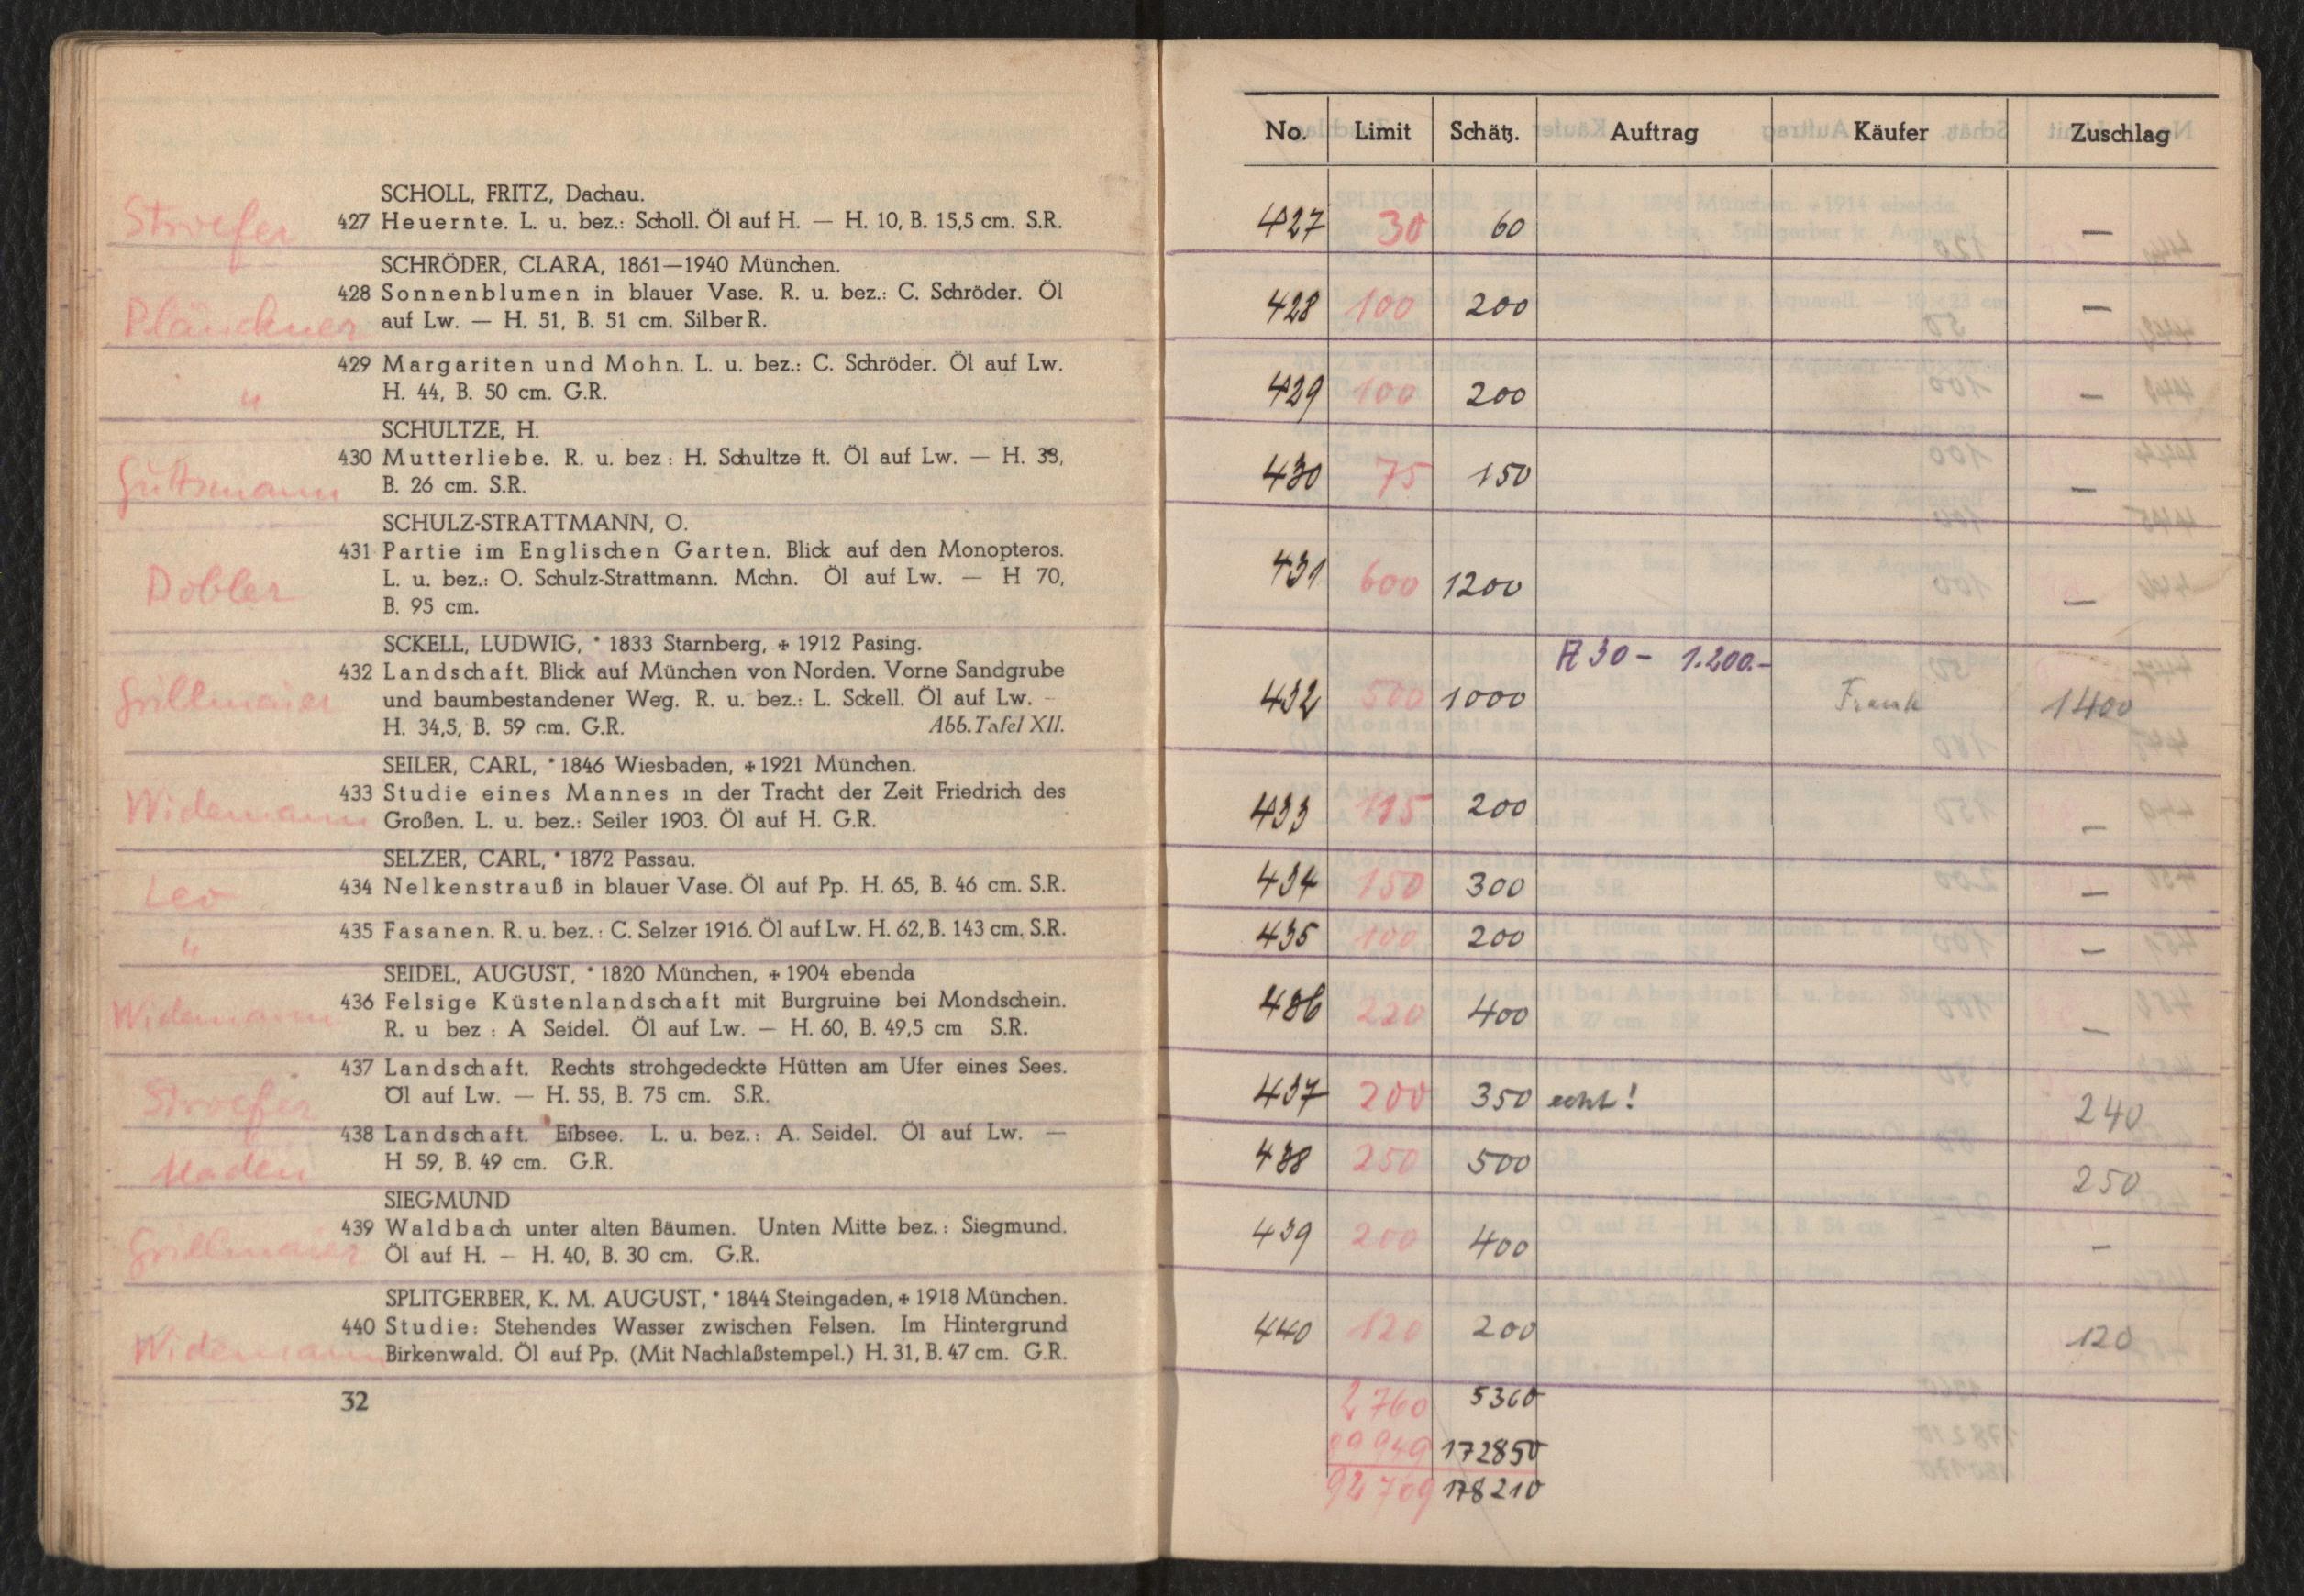 Stroefer
SCHOLL, FRITZ, Dachau.
427 Heuernte. L. u. bez.: Scholl. Öl auf H. — H. 10, B. 15,5 cm. S.R.
SCHRÖDER, CLARA, 1861—1940 München.
Pländkner
428 Sonnenblumen in blauer Vase. R. u. bez.: C. Schröder. Öl
auf Lw. — H. 51, B. 51 cm. Silber R.
429 Margariten und Mohn. L. u. bez.: C. Schröder. Öl auf Lw.
" H. 44, B. 50 cm. G.R.
SCHULTZE, H.
430 Mutterliebe. R. u. bez : H. Schultze ft. Öl auf Lw. — H. 33,
Guttsmann B. 26 cm. S.R.
SCHULZ-STRATTMANN, O.
431 Partie im Englischen Garten. Blick auf den Monopteros.
Dobler L. u. bez.: O. Schulz-Strattmann. Mchn. Öl auf Lw. — H 70,
B. 95 cm.
SCKELL, LUDWIG, * 1833 Starnberg, + 1912 Pasing.
432 Landschaft. Blick auf München von Norden. Vorne Sandgrube
Grillmaier und baumbestandener Weg. R. u. bez.: L. Sckell. Öl auf Lw. –
H. 34,5, B. 59 cm. G.R. Abb. Tafel XII.
SEILER, CARL, * 1846 Wiesbaden, + 1921 München.
433 Studie eines Mannes in der Tracht der Zeit Friedrich des
Widemann Großen. L. u. bez.: Seiler 1903. Öl auf H. G.R.
SELZER, CARL, * 1872 Passau.
Leo 434 Nelkenstrauß in blauer Vase. Öl auf Pp. H. 65, B. 46 cm. S.R.
" 435 Fasanen. R. u. bez. : C. Selzer 1916. Öl auf Lw. H. 62, B. 143 cm. S.R.
SEIDEL, AUGUST, * 1820 München, + 1904 ebenda
Widemann 436 Felsige Küstenlandschaft mit Burgruine bei Mondschein.
R. u bez : A Seidel. Öl auf Lw. — H. 60, B. 49,5 cm S.R.
437 Landschaft. Rechts strohgedeckte Hütten am Ufer eines Sees.
Stroefer Öl auf Lw. — H. 55, B. 75 cm. S.R.
438 Landschaft. Eibsee. L. u. bez.: A. Seidel. Öl auf Lw. —
Maden H 59, B. 49 cm. G.R.
SIEGMUND
439 Waldbach unter alten Bäumen. Unten Mitte bez.: Siegmund.
Grillmaier Öl auf H. — H. 40, B. 30 cm. G.R.
SPLITGERBER, K. M. AUGUST, * 1844 Steingaden, + 1918 München.
440 Studie: Stehendes Wasser zwischen Felsen. Im Hintergrund
Widemann Birkenwald. Öl auf Pp. (Mit Nachlaßstempel.) H. 31, B. 47 cm. G.R.
32
No. Limit Schätz. Auftrag Käufer Zuschlag
427 30 60 —
428 100 200 —
429 100 200 —
430 75 150 —
431 600 1200 —
A 30 – 1.200.–
432 500 1000 Frank 1400
433 115 200 —
434 150 300 —
435 100 200 —
436 220 400 —
437 200 350 echt! 240
438 250 500 250
439 200 400 –
440 120 200 120
2760 5360
89949 172850
92709 178210